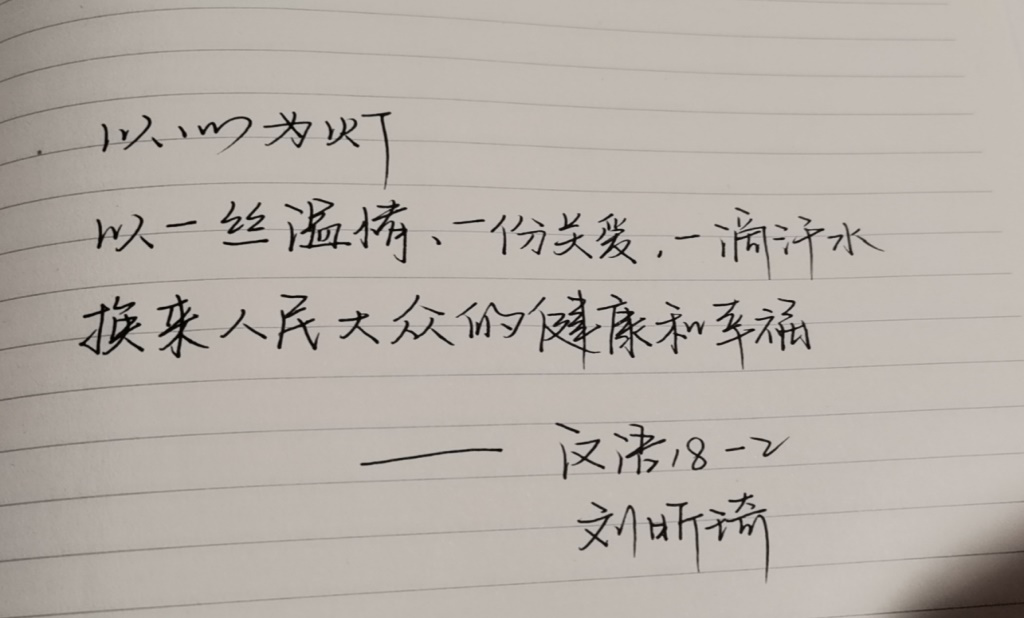 以心为灯
以一丝温情、一份关爱,一滴汗水
换来人民大众的健康和幸福
—— 汉语18-2
刘昕琦